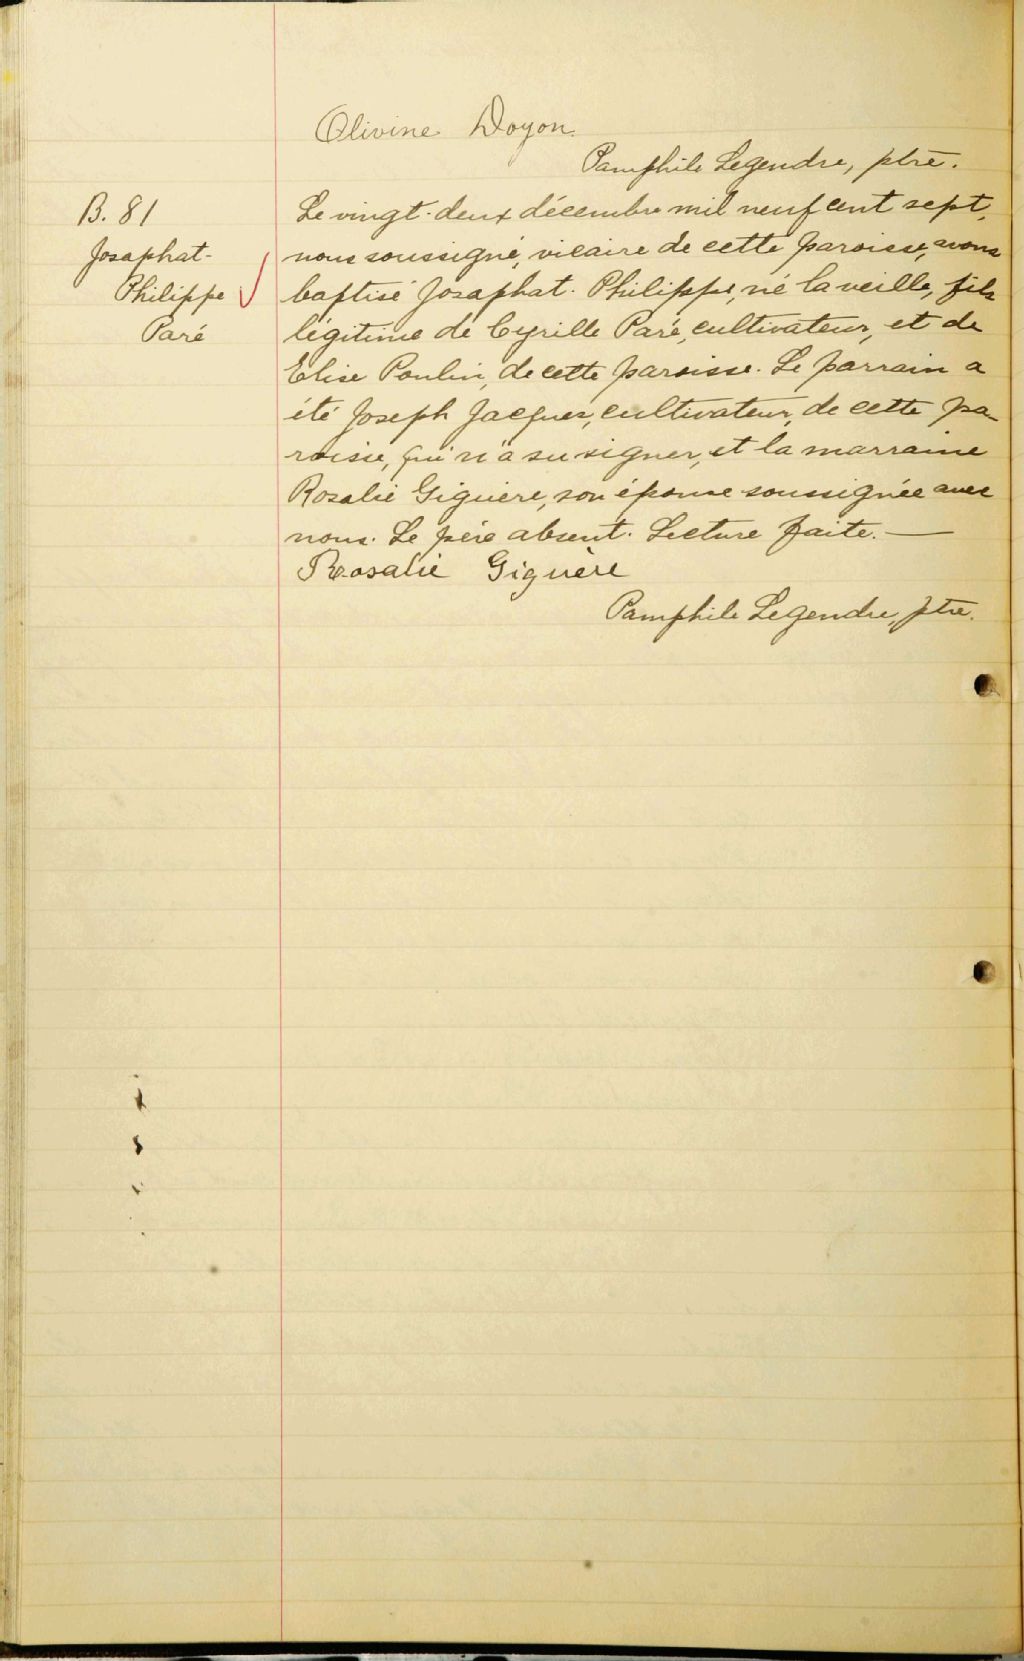 Olivine Doyon.
Pamphile Legendre, ptre.
B. 81
Josaphat-
Philippe
Paré
Le vingt-deux décembre mil neuf cent sept,
nous soussigné, vicaire de cette paroisse, avons
baptisé Josaphat-Philippe, né la veille, fils
légitime de Cyrille Paré, cultivateur, et de
Elise Poulin, de cette paroisse. Le parrain a
été Joseph Jacques, cultivateur, de cette pa-
roisse, qui n'a su signer, et la marraine
Rosalie Giguère, son épouse soussignée avec
nous. Le père absent. Lecture faite. —
Rosalie Giguère
Pamphile Legendre, ptre.